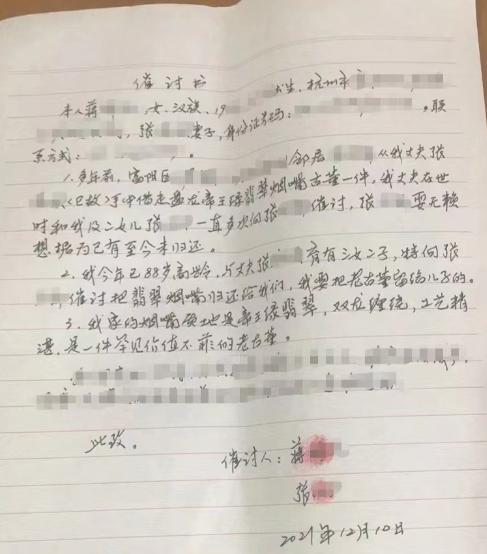 催讨书
本人蒋 ,女,汉族,19 出生,杭州市
,张 妻子,身份证号码: 。联
系方式:
1.多年前,富阳区 邻居 从我丈夫张
《已故》手中借走盘龙帝王绿翡翠烟嘴古董一件,我丈夫在世
时和我及二女儿张 一直多次向张 催讨,张 耍无赖
想据为已有至今未归还。
2.我今年已88岁高龄,与丈夫张 育有三女二子,特向张
,催讨把翡翠烟嘴归还给我们,我要把老古董留给儿子的。
3.我家的烟嘴质地是帝王绿翡翠,双龙缠绕,工艺精
湛,是一件罕见价值不菲的老古董。
此致。
催讨人:蒋
张
2021年12月10日